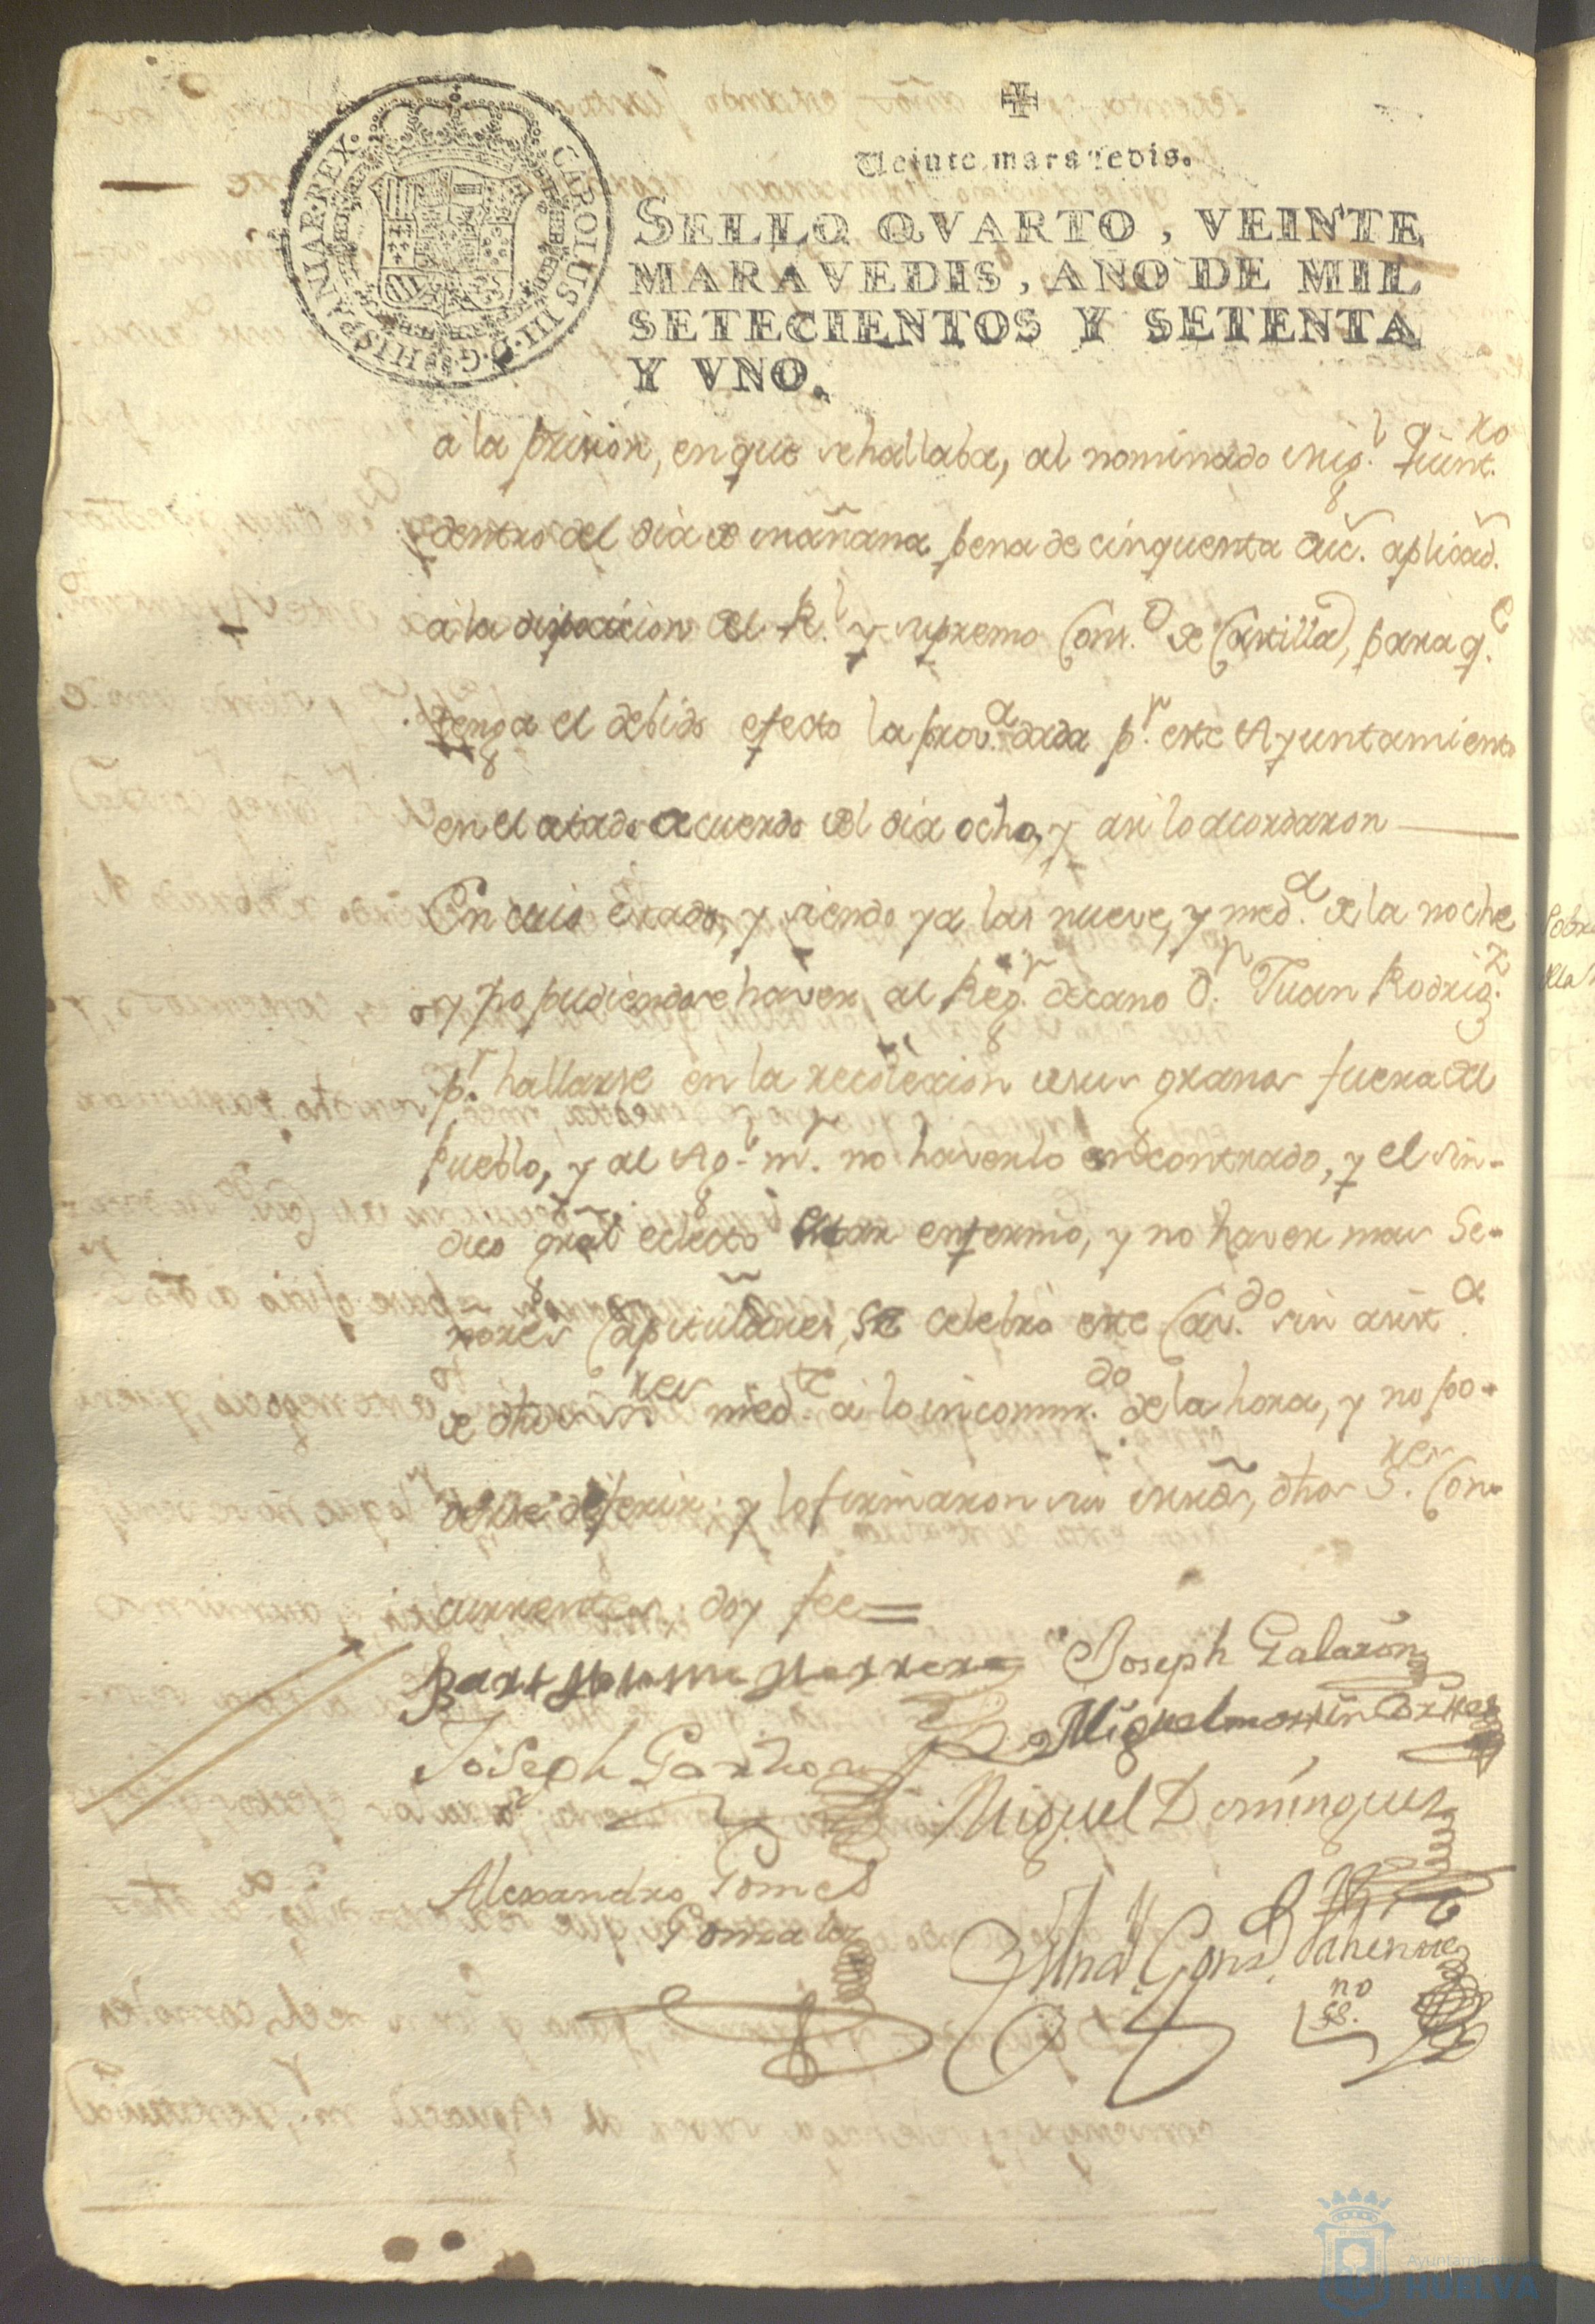 CAROLUS III·D·G·HISPANIAR·REX·
Veinte maravedis.
SELLO QVARTO, VEINTE
MARAVEDIS, AÑO DE MIL
SETECIENTOS Y SETENTA
Y VNO.
a la prision, en que se hallaba, al nominado Mig.l Quint.ro
dentro del dia de mañana pena de cinquenta duc.s aplicad.s
a la disposicion del R.l y supremo Cons.o de Castilla, para q.e
tenga el debido efecto la prov.a dada p.r este Ayuntamiento
en el citado acuerdo del dia ocho, y asi lo acordaron
En cuio estado, y siendo ya las nueve, y med.a de la noche
y no pudiendose haver al Reg.r decano D.n Juan Rodrig.z
p.r hallarse en la recolexcion de sus granos fuera del
Pueblo, y al Ag.l m.r no haverlo encontrado, y el sin-
dico gral electo estar enfermo, y no haver mas Se-
ñores Capitulares, se celebró este Cav.do sin asist.a
de dhos s.res med.te a lo incomm.do de la hora, y no po-
derse diferir; y lo firmaron sus mrds, dhos S.res Con-
currentes doy fee=
Barttolome Herrera Joseph Galazon
Miguel martin Corttes
Joseph Garzon
Miguel Domingues
Alexandro Gomes
Gonzalez
Gons.
no
Ayuntamiento
HUELVA